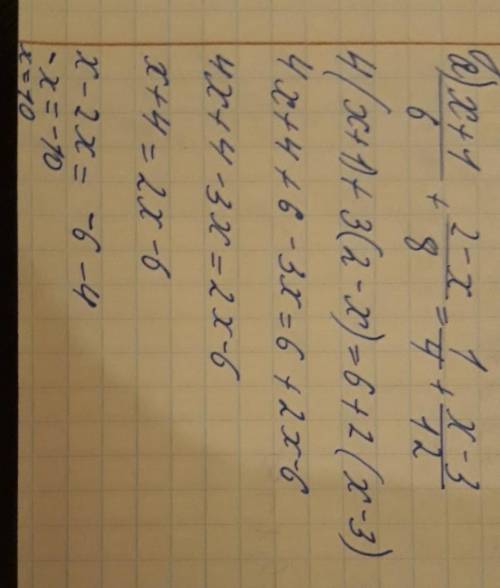 в) (x+1)/6 + (2-x)/8 = 1/4 + (x-3)/12
4(x+1)+3(2-x)=6+2(x-3)
4x+4+6-3x=6+2x-6
4x+4-3x=2x-6
x+4=2x-6
x-2x=-6-4
-x=-10
x=10